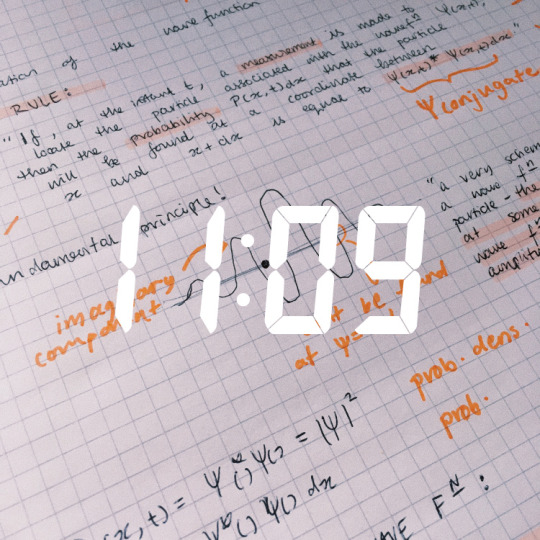 ation of the wave function
RULE:
"If, at the instant t, a measurement is made to
locate the particle associated with the wave fⁿ Ψ(x,t),
then the probability P(x,t)dx that the particle
will be found at a coordinate between
x and x+dx is equal to Ψ(x,t)* Ψ(x,t)dx"
Ψ conjugate
ndamental principle!
"a very schem
a wave fⁿ
particle - the
at some
wave fⁿ
amplitu
11:09
imaginary
component
t be found
at Ψ=
prob. dens.
prob.
(x,t) = Ψ*()Ψ() = |Ψ|²
Ψ*()Ψ() dx
AVE Fᴺ: